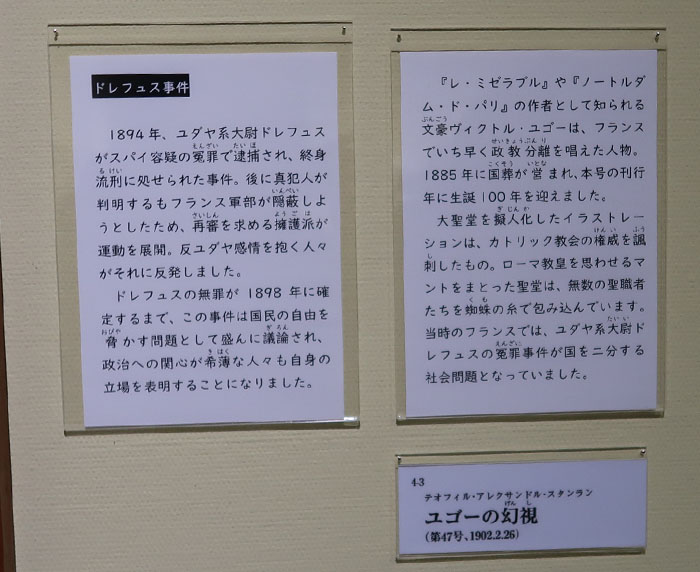 ドレフュス事件
1894年、ユダヤ系大尉ドレフュス
がスパイ容疑の冤罪で逮捕され、終身
流刑に処せられた事件。後に真犯人が
判明するもフランス軍部が隠蔽しよ
うとしたため、再審を求める擁護派が
運動を展開。反ユダヤ感情を抱く人々
がそれに反発しました。
ドレフュスの無罪が 1898 年に確
定するまで、この事件は国民の自由を
脅かす問題として盛んに議論され、
政治への関心が希薄な人々も自身の
立場を表明することになりました。
『レ・ミゼラブル』や『ノートルダ
ム・ド・パリ』の作者として知られる
文豪ヴィクトル・ユゴーは、フランス
でいち早く政教分離を唱えた人物。
1885年に国葬が営まれ、本号の刊行
年に生誕100年を迎えました。
大聖堂を擬人化したイラストレー
ションは、カトリック教会の権威を諷
刺したもの。ローマ教皇を思わせるマ
ントをまとった聖堂は、無数の聖職者
たちを蜘蛛の糸で包み込んでいます。
当時のフランスでは、ユダヤ系大尉ド
レフュスの冤罪事件が国を二分する
社会問題となっていました。
4-3
テオフィル・アレクサンドル・スタンラン
ユゴーの幻視
(第47号、1902.2.26)